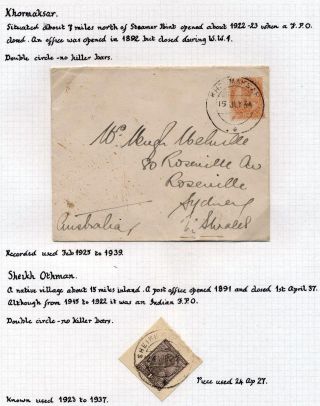 Khormaksar.
Situated about 7 miles north of Steamer Point opened about 1922-23 when a F.P.O.
closed. An office was opened in 1892 but closed during W.W.1.
Double circle - no killer bars.
15 JLY 34
Mr. Hugh Melville
80 Roseville Av
Roseville
Sydney
N. S. Wales
Australia
Recorded used Feb 1925 to 1939.
Sheikh Othman.
A native village about 15 miles inland. A post office opened 1891 and closed 1st April 37.
Although from 1915 to 1922 it was an Indian F.P.O.
Double circle - no killer bars.
SHEIKH
Piece used 24 Ap 27.
Known used 1923 to 1937.